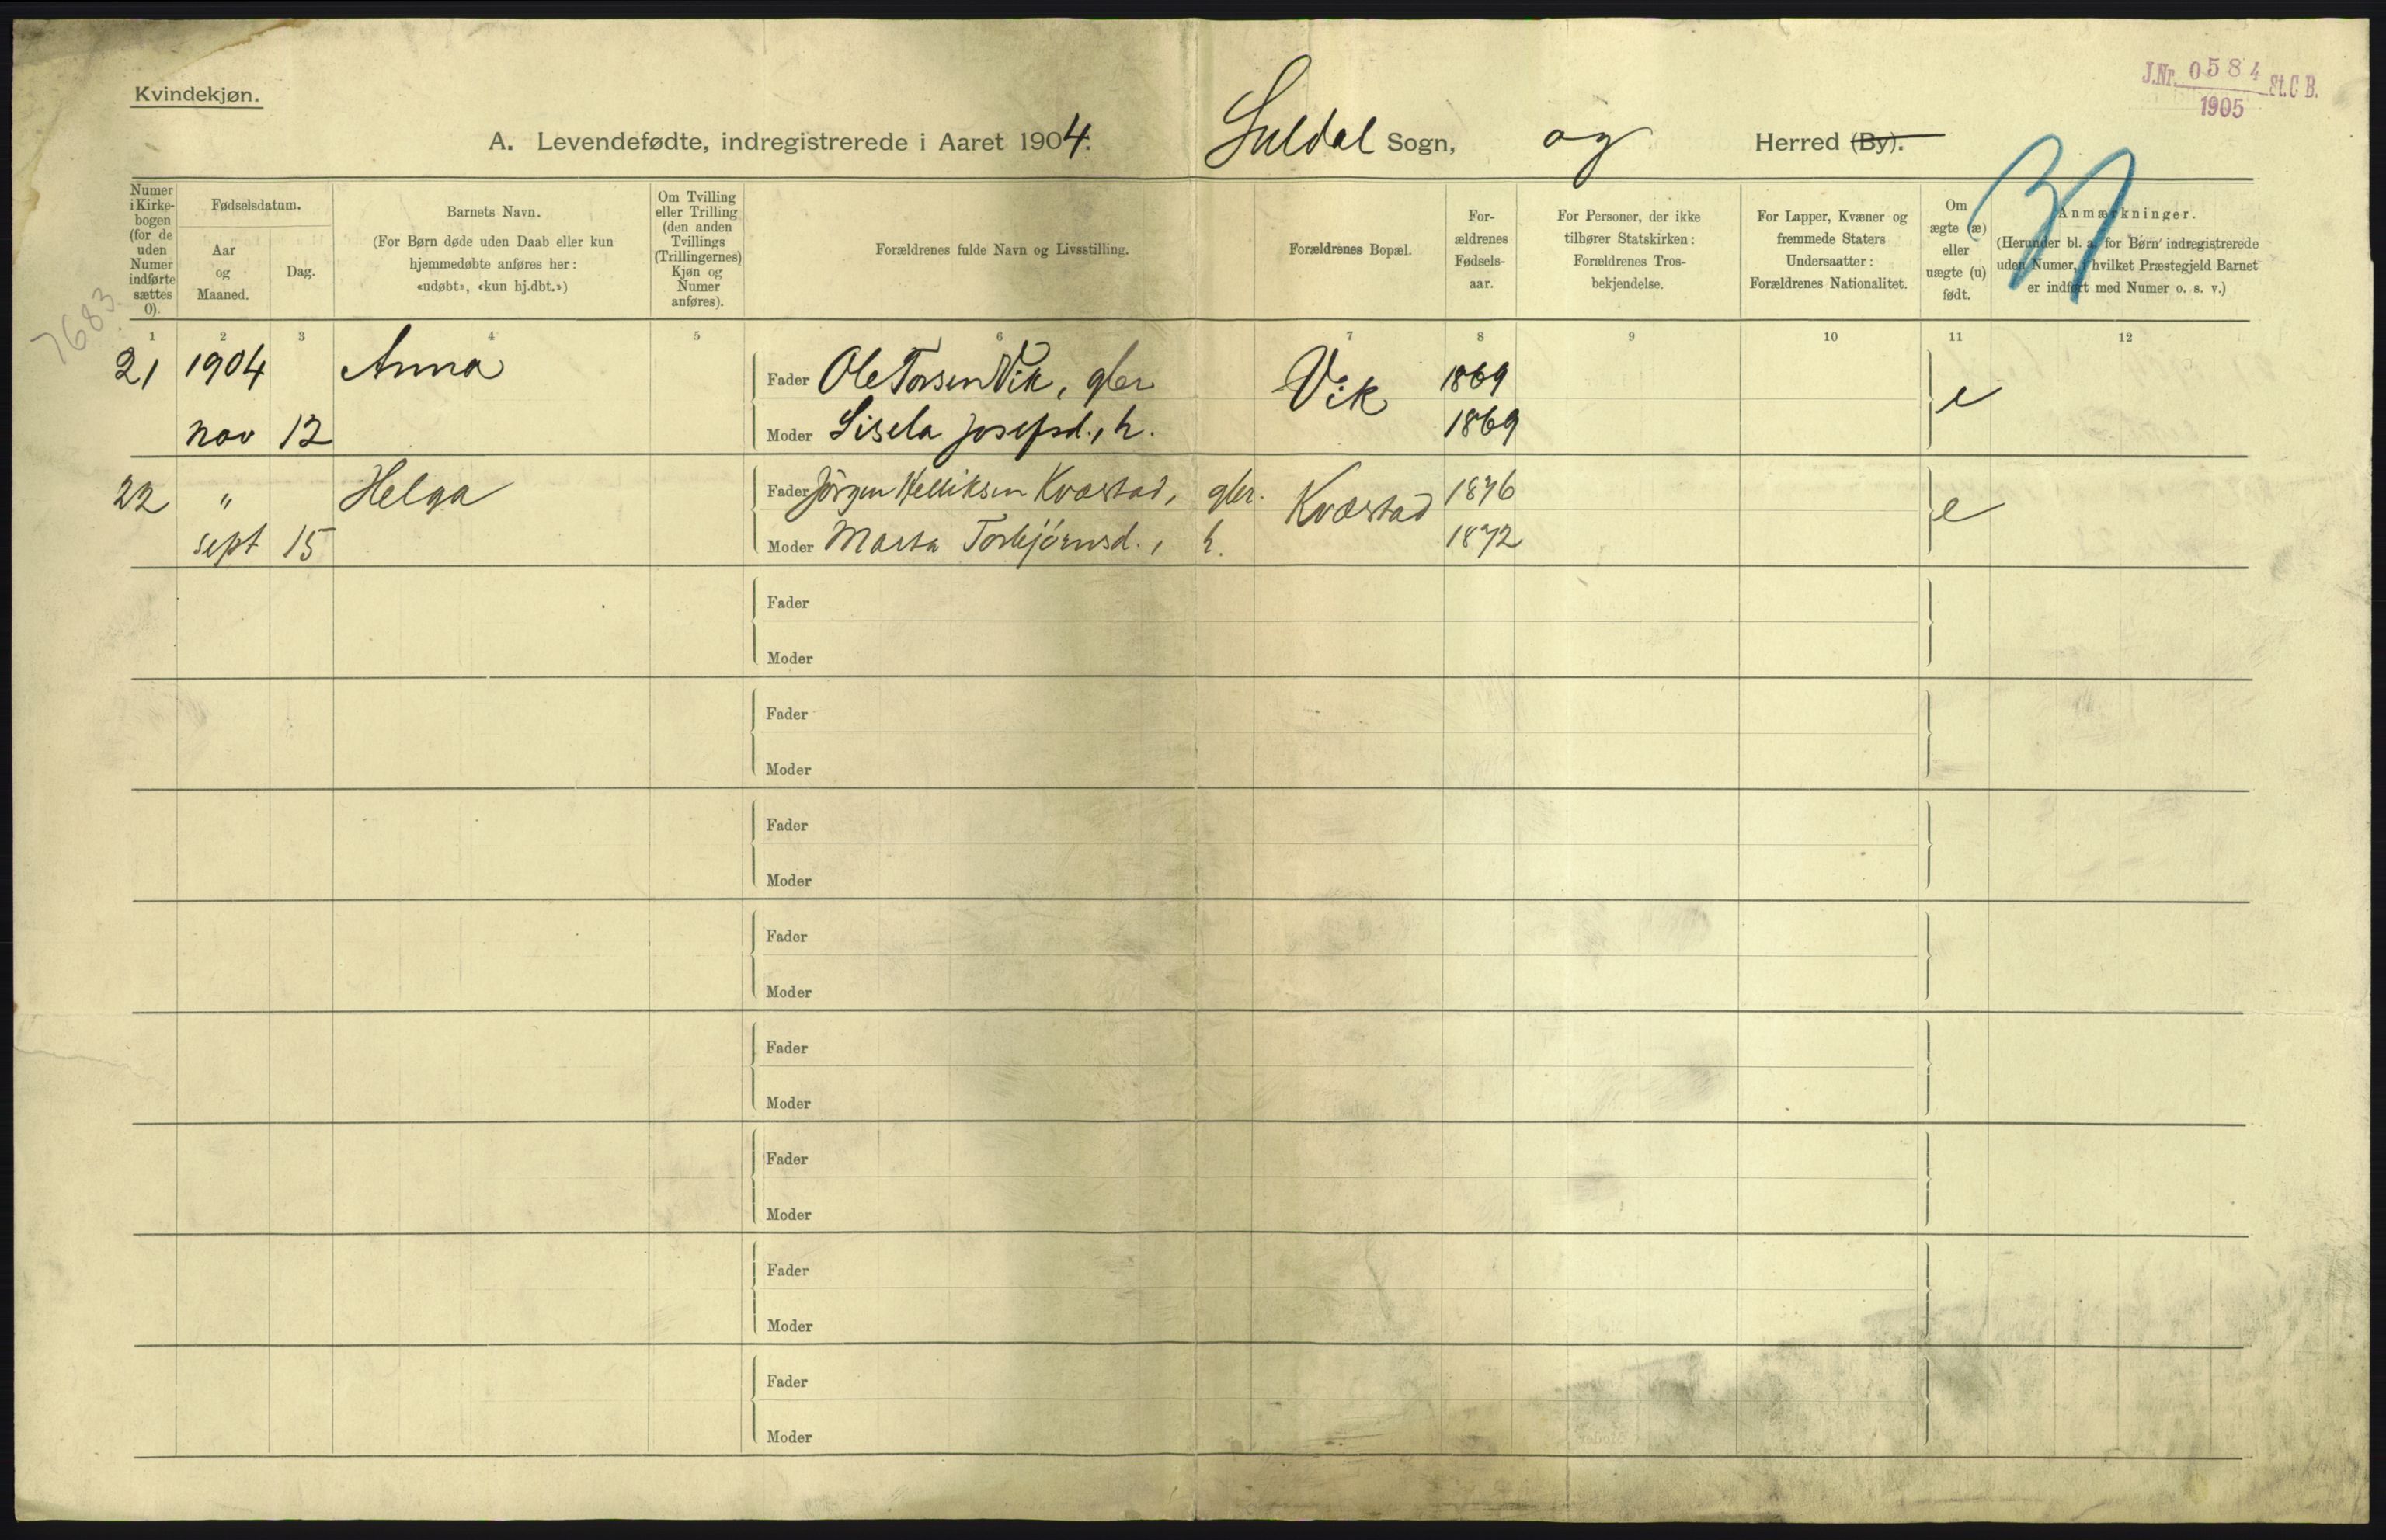 Kvindekjøn.
J.Nr. 0584 St. C B.
1905
A. Levendefødte, indregistrerede i Aaret 1904. Suldal Sogn, og Herred (By).
Numer i Kirke-bogen (for de uden Numer indførte sættes 0).
Fødselsdatum.
Aar og Maaned.
Dag.
Barnets Navn.
(For Børn døde uden Daab eller kun
hjemmedøbte anføres her:
«udøbt», «kun hj.dbt.»)
Om Tvilling
eller Trilling
(den anden
Tvillings
(Trillingernes)
Kjøn og
Numer
anføres).
Forældrenes fulde Navn og Livsstilling.
Forældrenes Bopæl.
For-
ældrenes
Fødsels-
aar.
For Personer, der ikke
tilhører Statskirken:
Forældrenes Tros-
bekjendelse.
For Lapper, Kvæner og
fremmede Staters
Undersaatter:
Forældrenes Nationalitet.
Om
ægte (æ)
eller
uægte (u)
født.
Anmærkninger.
(Herunder bl. a. for Børn indregistrerede
uden Numer, i hvilket Præstegjeld Barnet
er indført med Numer o. s. v.)
7683
1 2 3 4 5 6 7 8 9 10 11 12
21 1904 Anna Fader Ole Torsen Vik, gbr Vik 1869 e
nov 12 Moder Sisela Josefsd., h. 1869
22 " Helga Fader Jörgen Helliksen Kvæstad, gbr. Kvæstad 1876 e
sept 15 Moder Marta Torbjörnsd., h. 1872
Fader
Moder
Fader
Moder
Fader
Moder
Fader
Moder
Fader
Moder
Fader
Moder
Fader
Moder
Fader
Moder